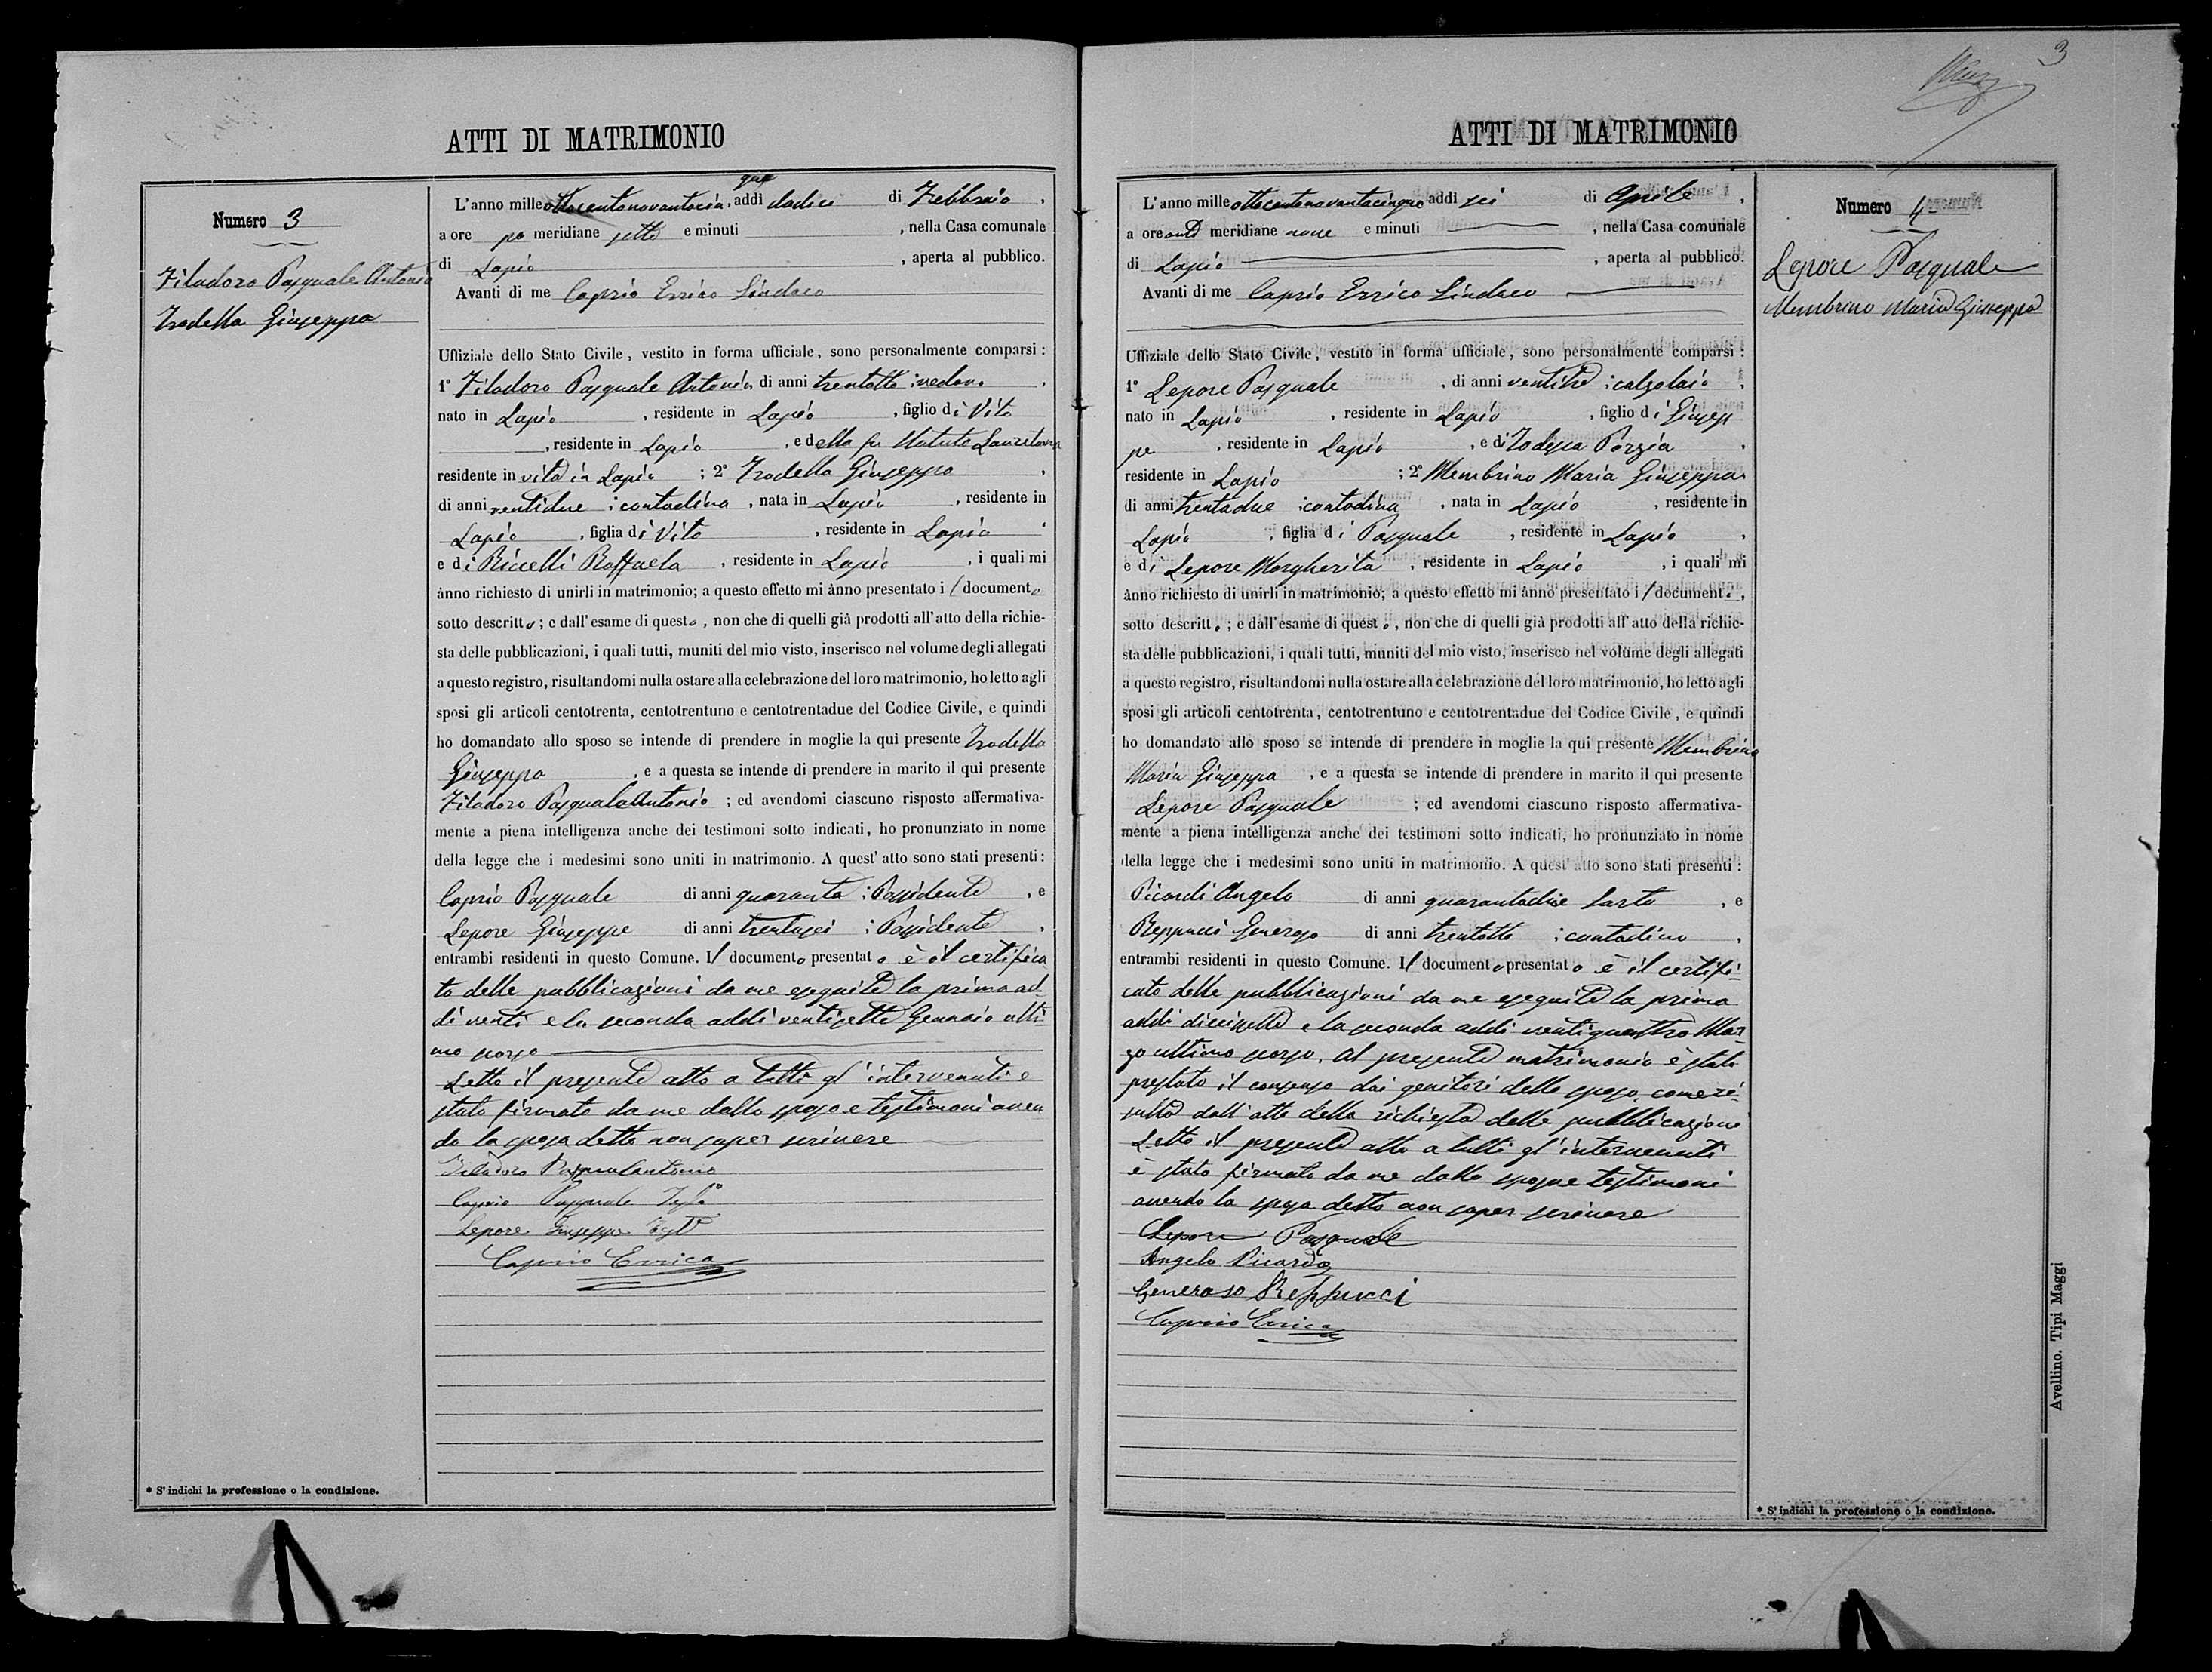 ATTI DI MATRIMONIO
Numero 3
Filadoro Pasquale Antonio
Iradella Giuseppa
L'anno mille ottocentonovantacin que, addì dodici di Febbraio,
a ore po meridiane sette e minuti , nella Casa comunale
di Lapio , aperta al pubblico.
Avanti di me Caprio Errico Sindaco
Uffiziale dello Stato Civile, vestito in forma ufficiale, sono personalmente comparsi:
1° Filadoro Pasquale Antonio di anni trentotto; vedovo ,
nato in Lapio , residente in Lapio , figlio di Vito
, residente in Lapio , e della fu
residente in vita in Lapio ; 2° Iradella Giuseppa ,
di anni ventidue ; contadina , nata in Lapio , residente in
Lapio , figlia di Vito , residente in Lapio ,
e di Riccelli Raffaela , residente in Lapio , i quali mi
ànno richiesto di unirli in matrimonio; a questo effetto mi ànno presentato il documento
sotto descritto; e dall'esame di questo, non che di quelli già prodotti all'atto della richie-
sta delle pubblicazioni, i quali tutti, muniti del mio visto, inserisco nel volume degli allegati
a questo registro, risultandomi nulla ostare alla celebrazione del loro matrimonio, ho letto agli
sposi gli articoli centotrenta, centotrentuno e centotrentadue del Codice Civile, e quindi
ho domandato allo sposo se intende di prendere in moglie la qui presente Iradella
Giuseppa , e a questa se intende di prendere in marito il qui presente
Filadoro Pasquale Antonio ; ed avendomi ciascuno risposto affermativa-
mente a piena intelligenza anche dei testimoni sotto indicati, ho pronunziato in nome
della legge che i medesimi sono uniti in matrimonio. A quest'atto sono stati presenti:
Caprio Pasquale di anni quaranta ; Possidente , e
Lepore Giuseppe di anni trentasei ; Possidente ,
entrambi residenti in questo Comune. Il documento presentato è il certifica
to delle pubblicazioni da me eseguite la prima ad-
di venti e la seconda addi ventisette Gennaio ulti-
mo scorso
Letto il presente atto a tutti gl'intervenuti è
stato firmato da me dallo sposo e testimoni aven
do la sposa detto non saper scrivere
Filadoro Pasqualantonio
Caprio Pasquale Test°
Lepore Giuseppe Test°
Caprio Errico
* S'indichi la professione o la condizione.
3
ATTI DI MATRIMONIO
Numero 4
Lepore Pasquale
Membrino Maria Giuseppa
L'anno mille ottocentonovantacinque addì sei di Aprile ,
a ore anti meridiane nove e minuti , nella Casa comunale
di Lapio , aperta al pubblico.
Avanti di me Caprio Errico Sindaco
Uffiziale dello Stato Civile, vestito in forma ufficiale, sono personalmente comparsi:
1° Lepore Pasquale , di anni ventitre ; calzolaio ,
nato in Lapio , residente in Lapio , figlio di Giusep
pe , residente in Lapio , e di Porzia ,
residente in Lapio ; 2° Membrino Maria Giuseppa
di anni trentadue ; contadina , nata in Lapio , residente in
Lapio , figlia di Pasquale , residente in Lapio ,
e di Lepore Margherita , residente in Lapio , i quali mi
ànno richiesto di unirli in matrimonio; a questo effetto mi ànno presentato il documento,
sotto descritto; e dall'esame di questo, non che di quelli già prodotti all'atto della richie-
sta delle pubblicazioni, i quali tutti, muniti del mio visto, inserisco nel volume degli allegati
a questo registro, risultandomi nulla ostare alla celebrazione del loro matrimonio, ho letto agli
sposi gli articoli centotrenta, centotrentuno e centotrentadue del Codice Civile, e quindi
ho domandato allo sposo se intende di prendere in moglie la qui presente Membrino
Maria Giuseppa , e a questa se intende di prendere in marito il qui presente
Lepore Pasquale ; ed avendomi ciascuno risposto affermativa-
mente a piena intelligenza anche dei testimoni sotto indicati, ho pronunziato in nome
della legge che i medesimi sono uniti in matrimonio. A quest'atto sono stati presenti:
Picardi Angelo di anni quarantadue Sarto , e
Reppucci Generoso di anni trentotto ; contadino ,
entrambi residenti in questo Comune. Il documento presentato è il certifi-
cato delle pubblicazioni da me eseguite la prima
addi diecisette e la seconda addi ventiquattro Mar
zo ultimo scorso. Al presente matrimonio è stato
prestato il consenso dai genitori dello sposo come ri-
sulta dall'atto della richiesta delle pubblicazione
Letto il presente atto a tutti gl'intervenuti
è stato firmato da me dallo sposo e testimoni
avendo la sposa detto non saper scrivere
Lepore Pasquale
Angelo Picardi
Generoso Reppucci
Caprio Errico
* S'indichi la professione o la condizione.
Avellino. Tipi Maggi